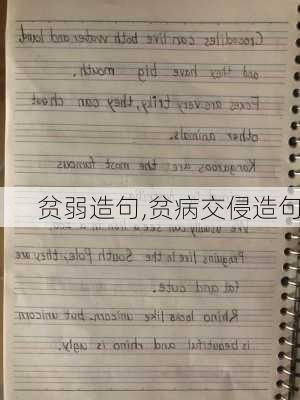 Crocodiles can live both water and land,
and they have big mouth.
Foxes are very triky, they can cheat
other animals.
Kangaroos are the most famous
贫弱造句,贫病交侵造句
We usually can see a lion in a zoo
Penguins live in the South Pole, they are
fat and cute.
Rhino looks like unicorn, but unicorn
is beautiful and rhino is ugly.